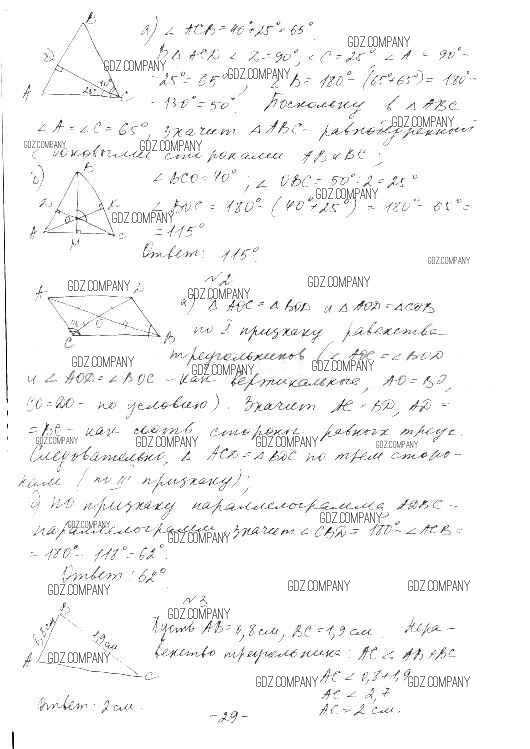 а) ∠ACB=40°+25°=65°
В ΔACD ∠D=90°, ∠C=25° ∠A=90°-
-25°=65°, ∠B=180°-(65°+65°)=180°-
-130°=50°. Поскольку в ΔABC
∠A=∠C=65°, значит ΔABC- равнобедренный
с боковыми сторонами AB и BC;
б) ∠BCO=40°; ∠OBC=50°:2=25°
∠BOC=180°-(40°+25°)=180°-65°=
=115°
Ответ: 115°.
№2
а) ΔAOC=ΔBOD и ΔAOD=ΔCOB
по I признаку равенства
треугольников (∠AOC=∠BOD
и ∠AOD=∠BOC - как вертикальные, AO=BO,
CO=DO- по условию). Значит AC=BD, AD=
=BC- как соотв стороны равных треуг.
Следовательно, ΔACD=ΔBDC по трем сторо-
нам (по III признаку);
По признаку параллелограмма ADBC-
параллелограмм, значит ∠CBD=180°-∠ACB=
=180°-118°=62°.
Ответ: 62°
№3
Пусть AB=0,8см, BC=1,9см. Нера-
венство треугольника: AC<AB+BC
AC<0,8+1,9
AC<2,7
AC=2см.
Ответ: 2см.
-29-
GDZ.COMPANY